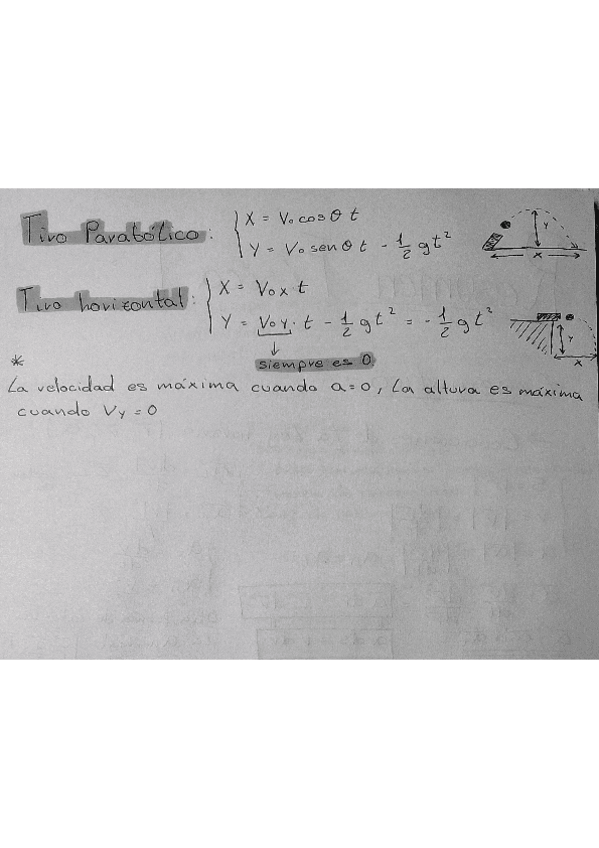 Tiro Parabólico: { X = Vo cos θ t
Y = Vo sen θ t - 1/2 gt²
Y
X
Tiro horizontal: { X = Vox t
Y = Voy · t - 1/2 gt² = - 1/2 gt²
siempre es 0
Y
X
*
La velocidad es máxima cuando a=0, La altura es máxima
cuando Vy = 0